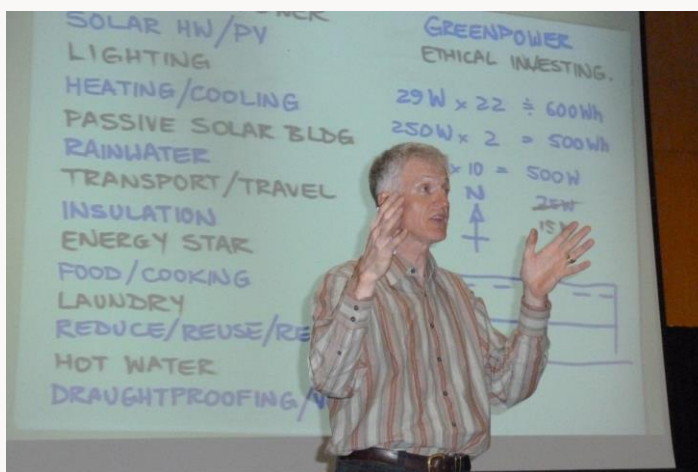 SOLAR HW/PV
LIGHTING
HEATING/COOLING
PASSIVE SOLAR BLDG
RAINWATER
TRANSPORT/TRAVEL
INSULATION
ENERGY STAR
FOOD/COOKING
LAUNDRY
REDUCE/REUSE/RE
HOT WATER
DRAUGHTPROOFING/
GREENPOWER
ETHICAL INVESTING.
29W x 22 ≑ 600Wh
250W x 2 = 500Wh
x 10 = 500W
N
25W
15